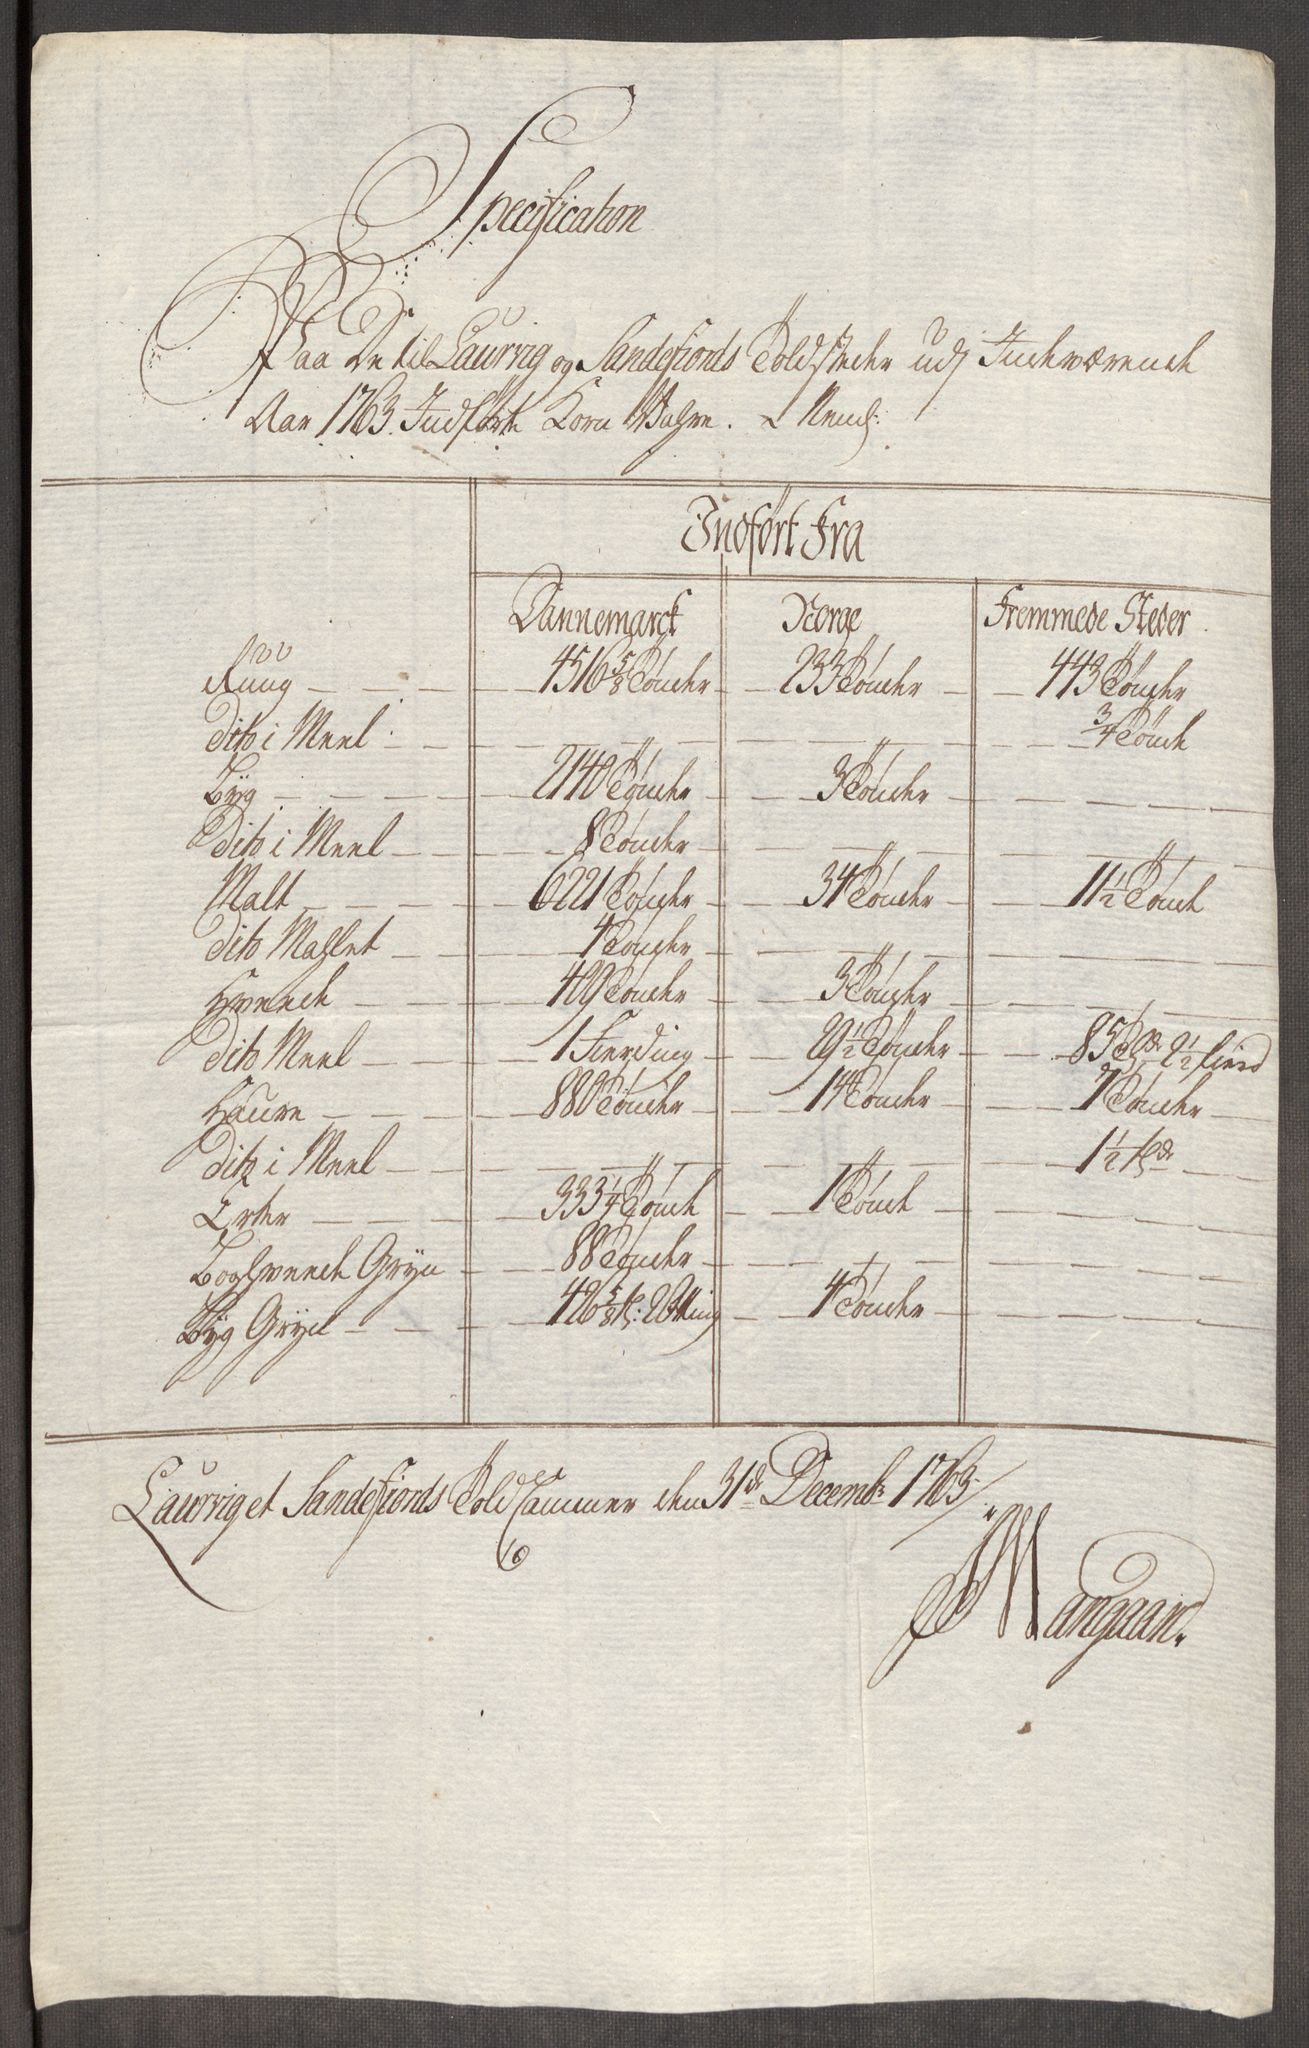 Specification
Paa De til Laurvig og Sandefiords Toldsteder udj Indeværende
Aar 1763. Indførte Korn Wahre. Neml:
Indført Fra
Dannemarck Norge Fremmede Steder
Rüüg 4516 5/8 Tønder 233 Tønder 443 Tønder
dito i Meel 3/4 Tønde
Byg 2140 Tønder 3 Tønder
dito i Meel 8 Tønder
Malt 6221 Tønder 34 Tønder 11 1/2 Tønde
dito Mahlet 4 Tønder
Hveede 409 Tønder 3 Tønder
dito Meel 1 Fierding 29 1/2 Tønder 85 2 1/2 fierd
Haure 880 Tønder 14 Tønder 7 Tønder
dito i Meel 1 1/2
Erter 333 1/4 Tønde 1 Tønde
Boghveede Gryn 88 Tønder
Byg Gryn 426 5/8 4 Tønder
Laurvig et Sandefiords Told Cammer den 31de Decembr 1763
Mangaard.